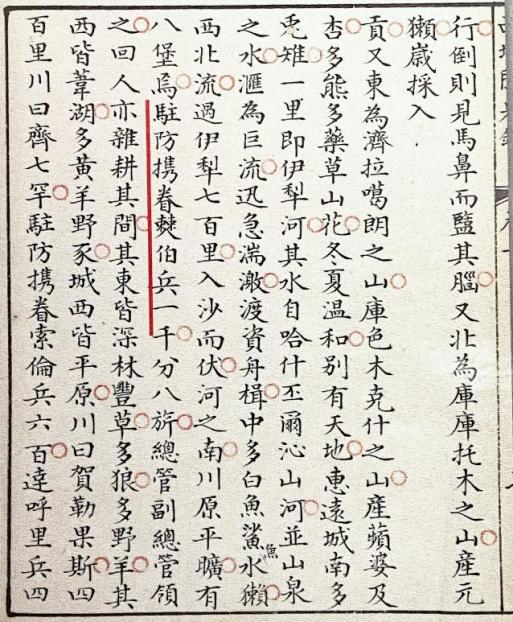 行倒則見馬鼻而盬其腦又北為庫庫托木之山產元
獺歲採入
貢又東為濟拉噶朗之山庫色木克什之山產蘋婆及
杏多熊多藥草山花冬夏溫和別有天地惠遠城南多
兎雉一里即伊犁河其水自哈什丕爾沁山河並山泉
之水滙為巨流迅急湍澉渡資舟楫中多白魚鯊魚水獺
西北流過伊犁七百里入沙而伏河之南川原平曠有
八堡焉駐防携眷僰伯兵一千分八旂總管副總管領
之回人亦雜耕其間其東皆深林豐草多狼多野羊其
西皆葦湖多黃羊野豕城西皆平原川曰賀勒果斯四
百里川曰齊七罕駐防携眷索倫兵六百達呼里兵四